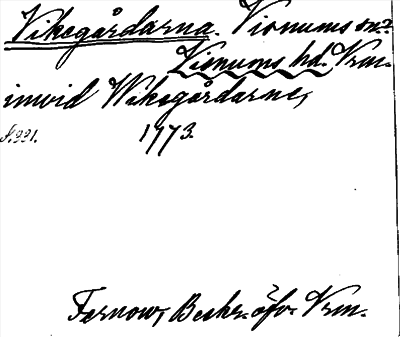 Vikegårdarna. Visnums sn?
Visnums hd. Vrm.
invid Wikegårdarne,
s. 221. 1773.
Fernow, Beskr. öfv. Vrm.